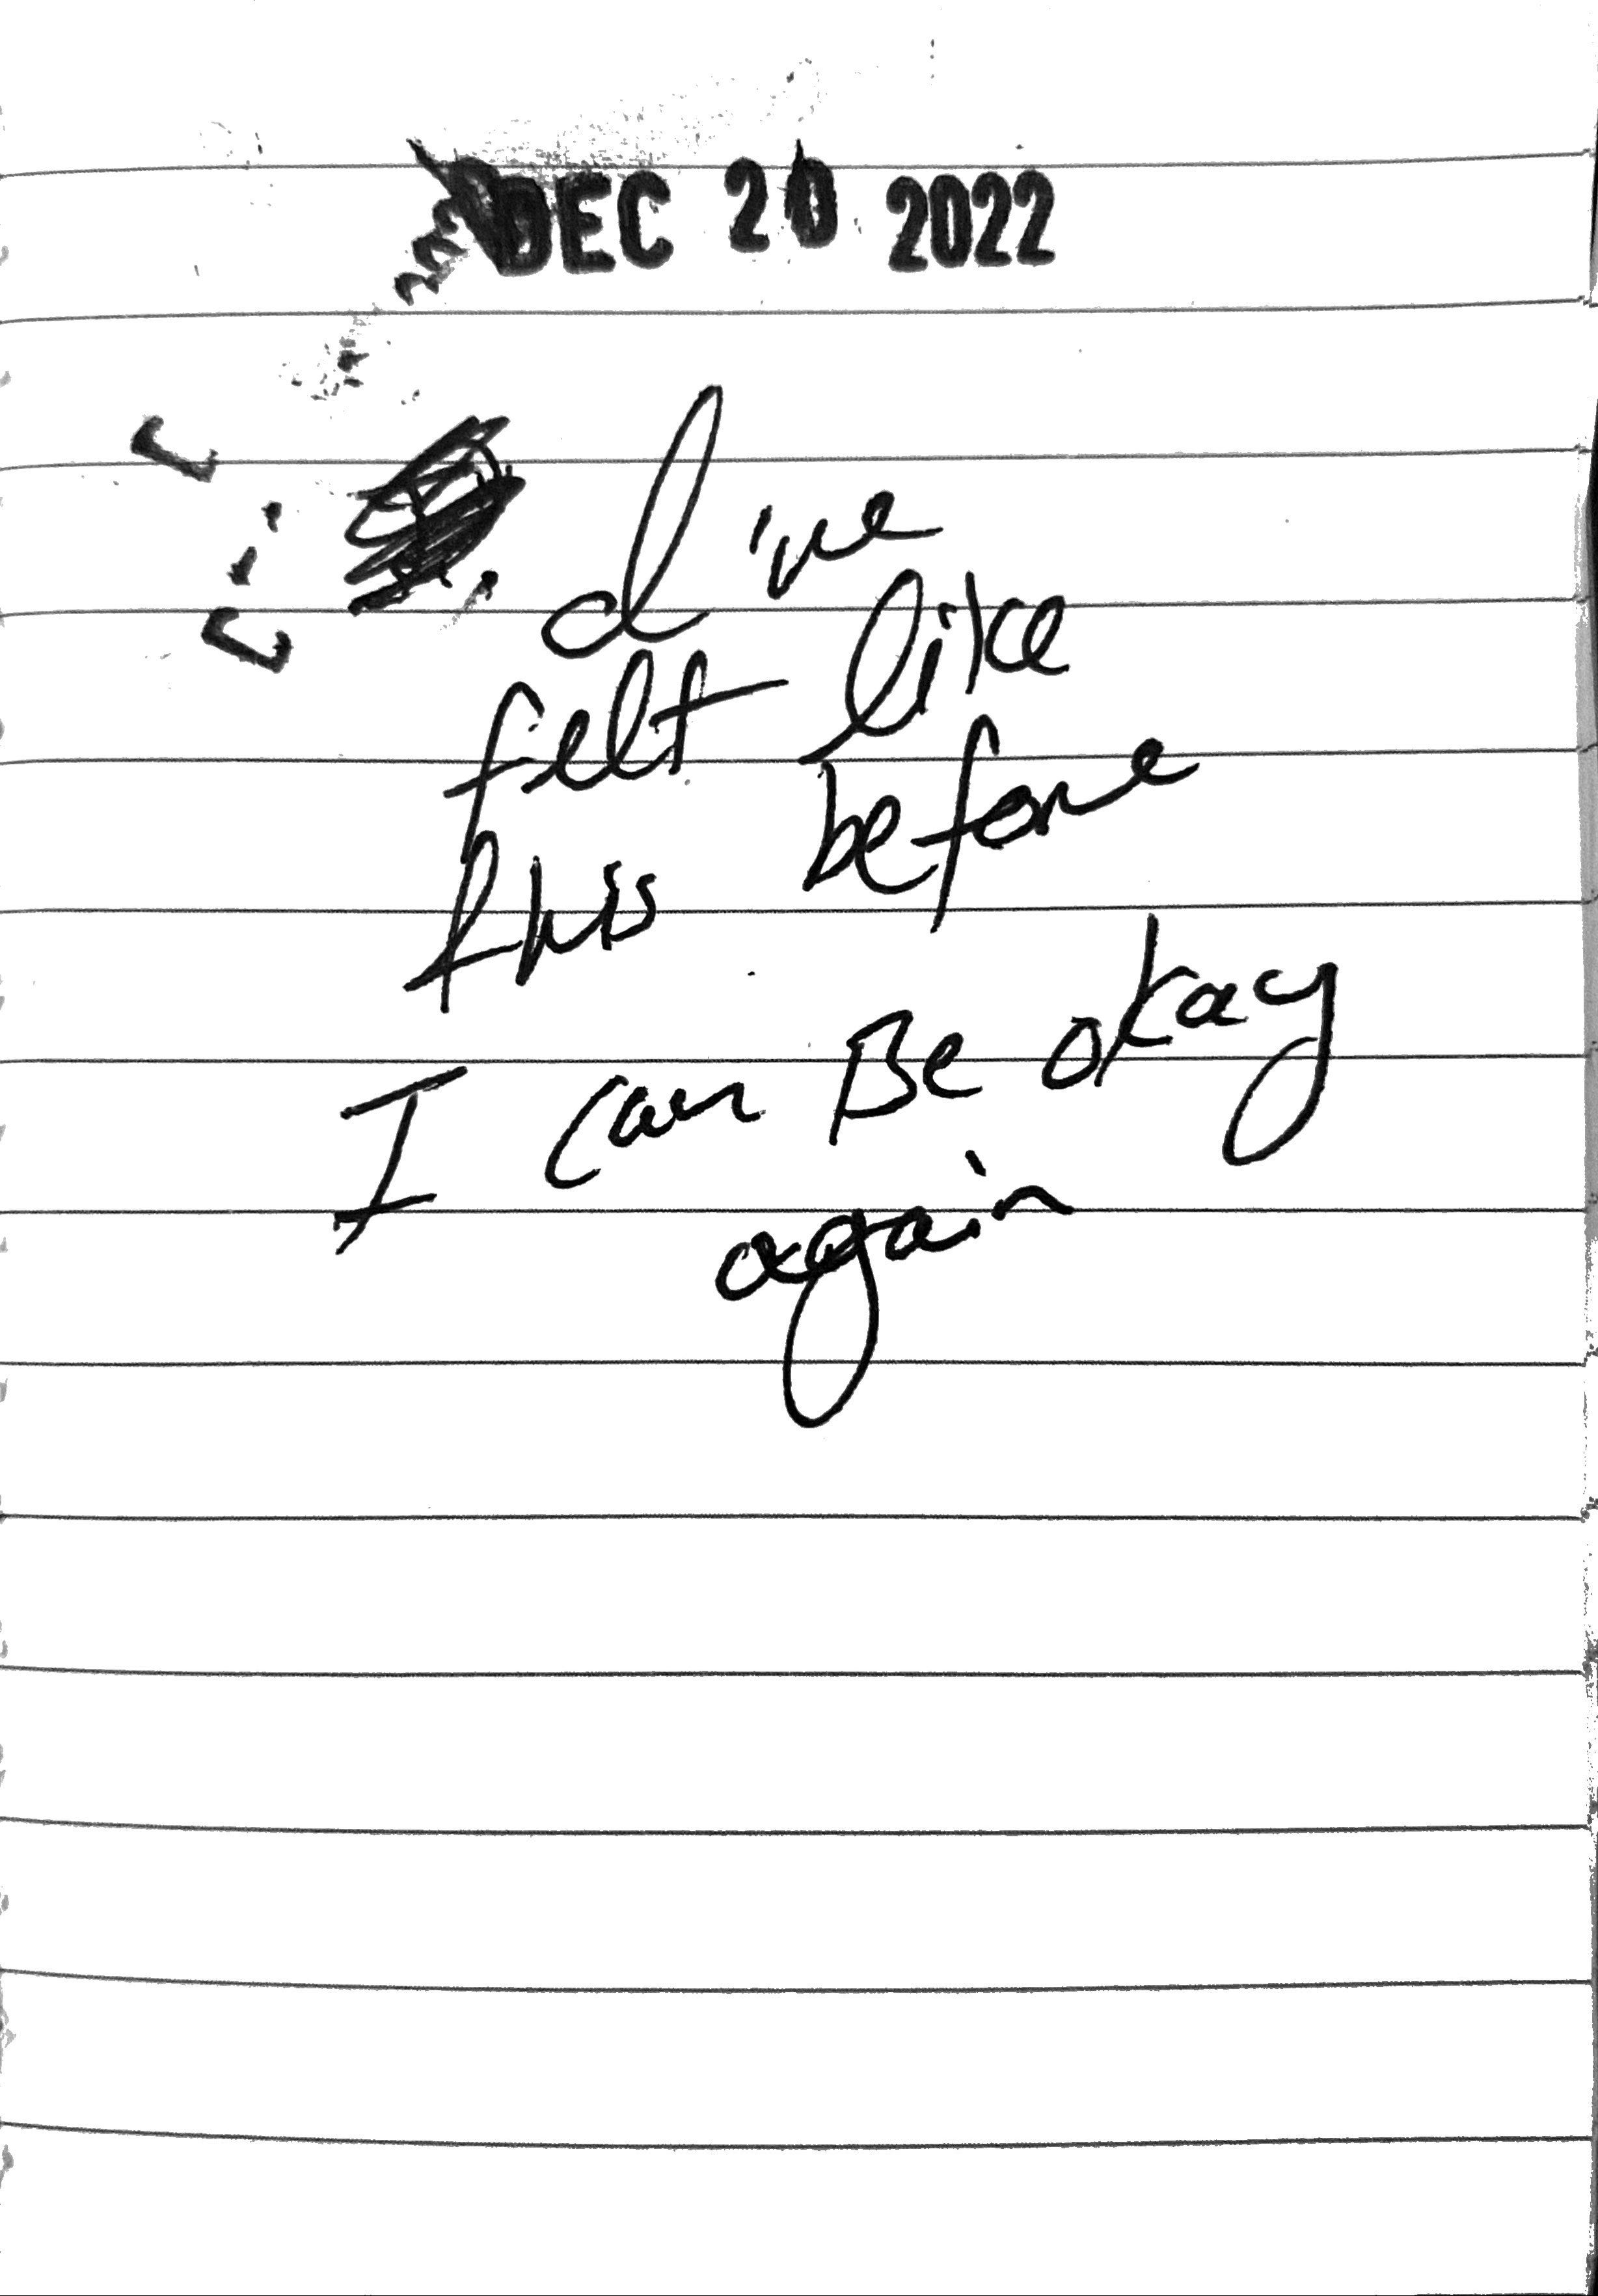 DEC 20 2022
I've
felt like
this before
I can Be okay
again